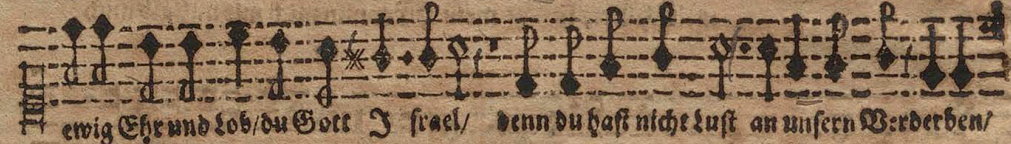 ewig Ehr und Lob/ du Gott I srael/ denn du hast nicht Lust an unsern Verderben/